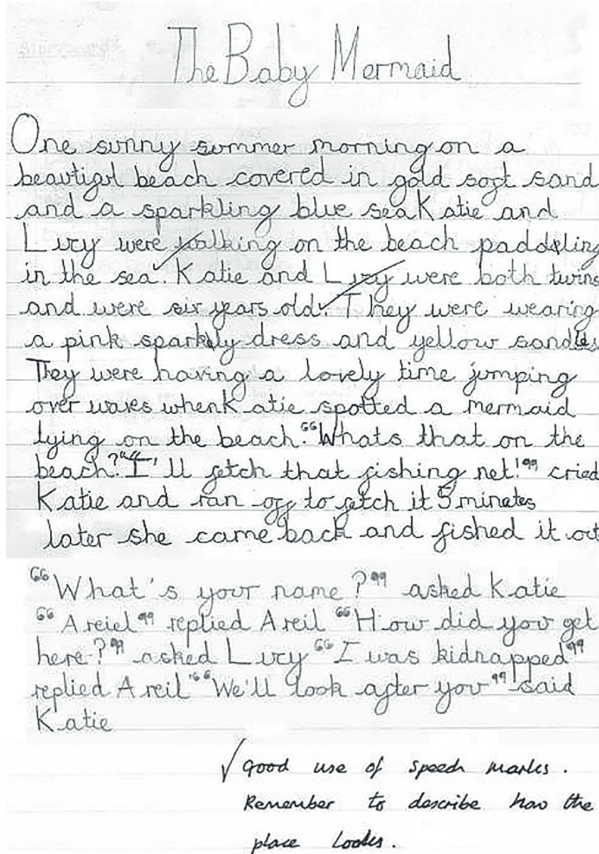 The Baby Mermaid
One sunny summer morning on a
beautiful beach covered in gold soft sand
and a sparkling blue sea Katie and
Lucy were walking on the beach paddling
in the sea. Katie and Lucy were both twins
and were six years old. They were wearing
a pink sparkly dress and yellow sandles
They were having a lovely time jumping
over waves when Katie spotted a mermaid
lying on the beach. "Whats that on the
beach?" "I'll fetch that fishing net!" cried
Katie and ran off to fetch it 5 minutes
later she came back and fished it out
"What's your name?" asked Katie
"Areiel" replied Areil "How did you get
here?" asked Lucy "I was kidnapped"
replied Areil "We'll look after you" said
Katie
✓ Good use of speech marks.
Remember to describe how the
place looks.